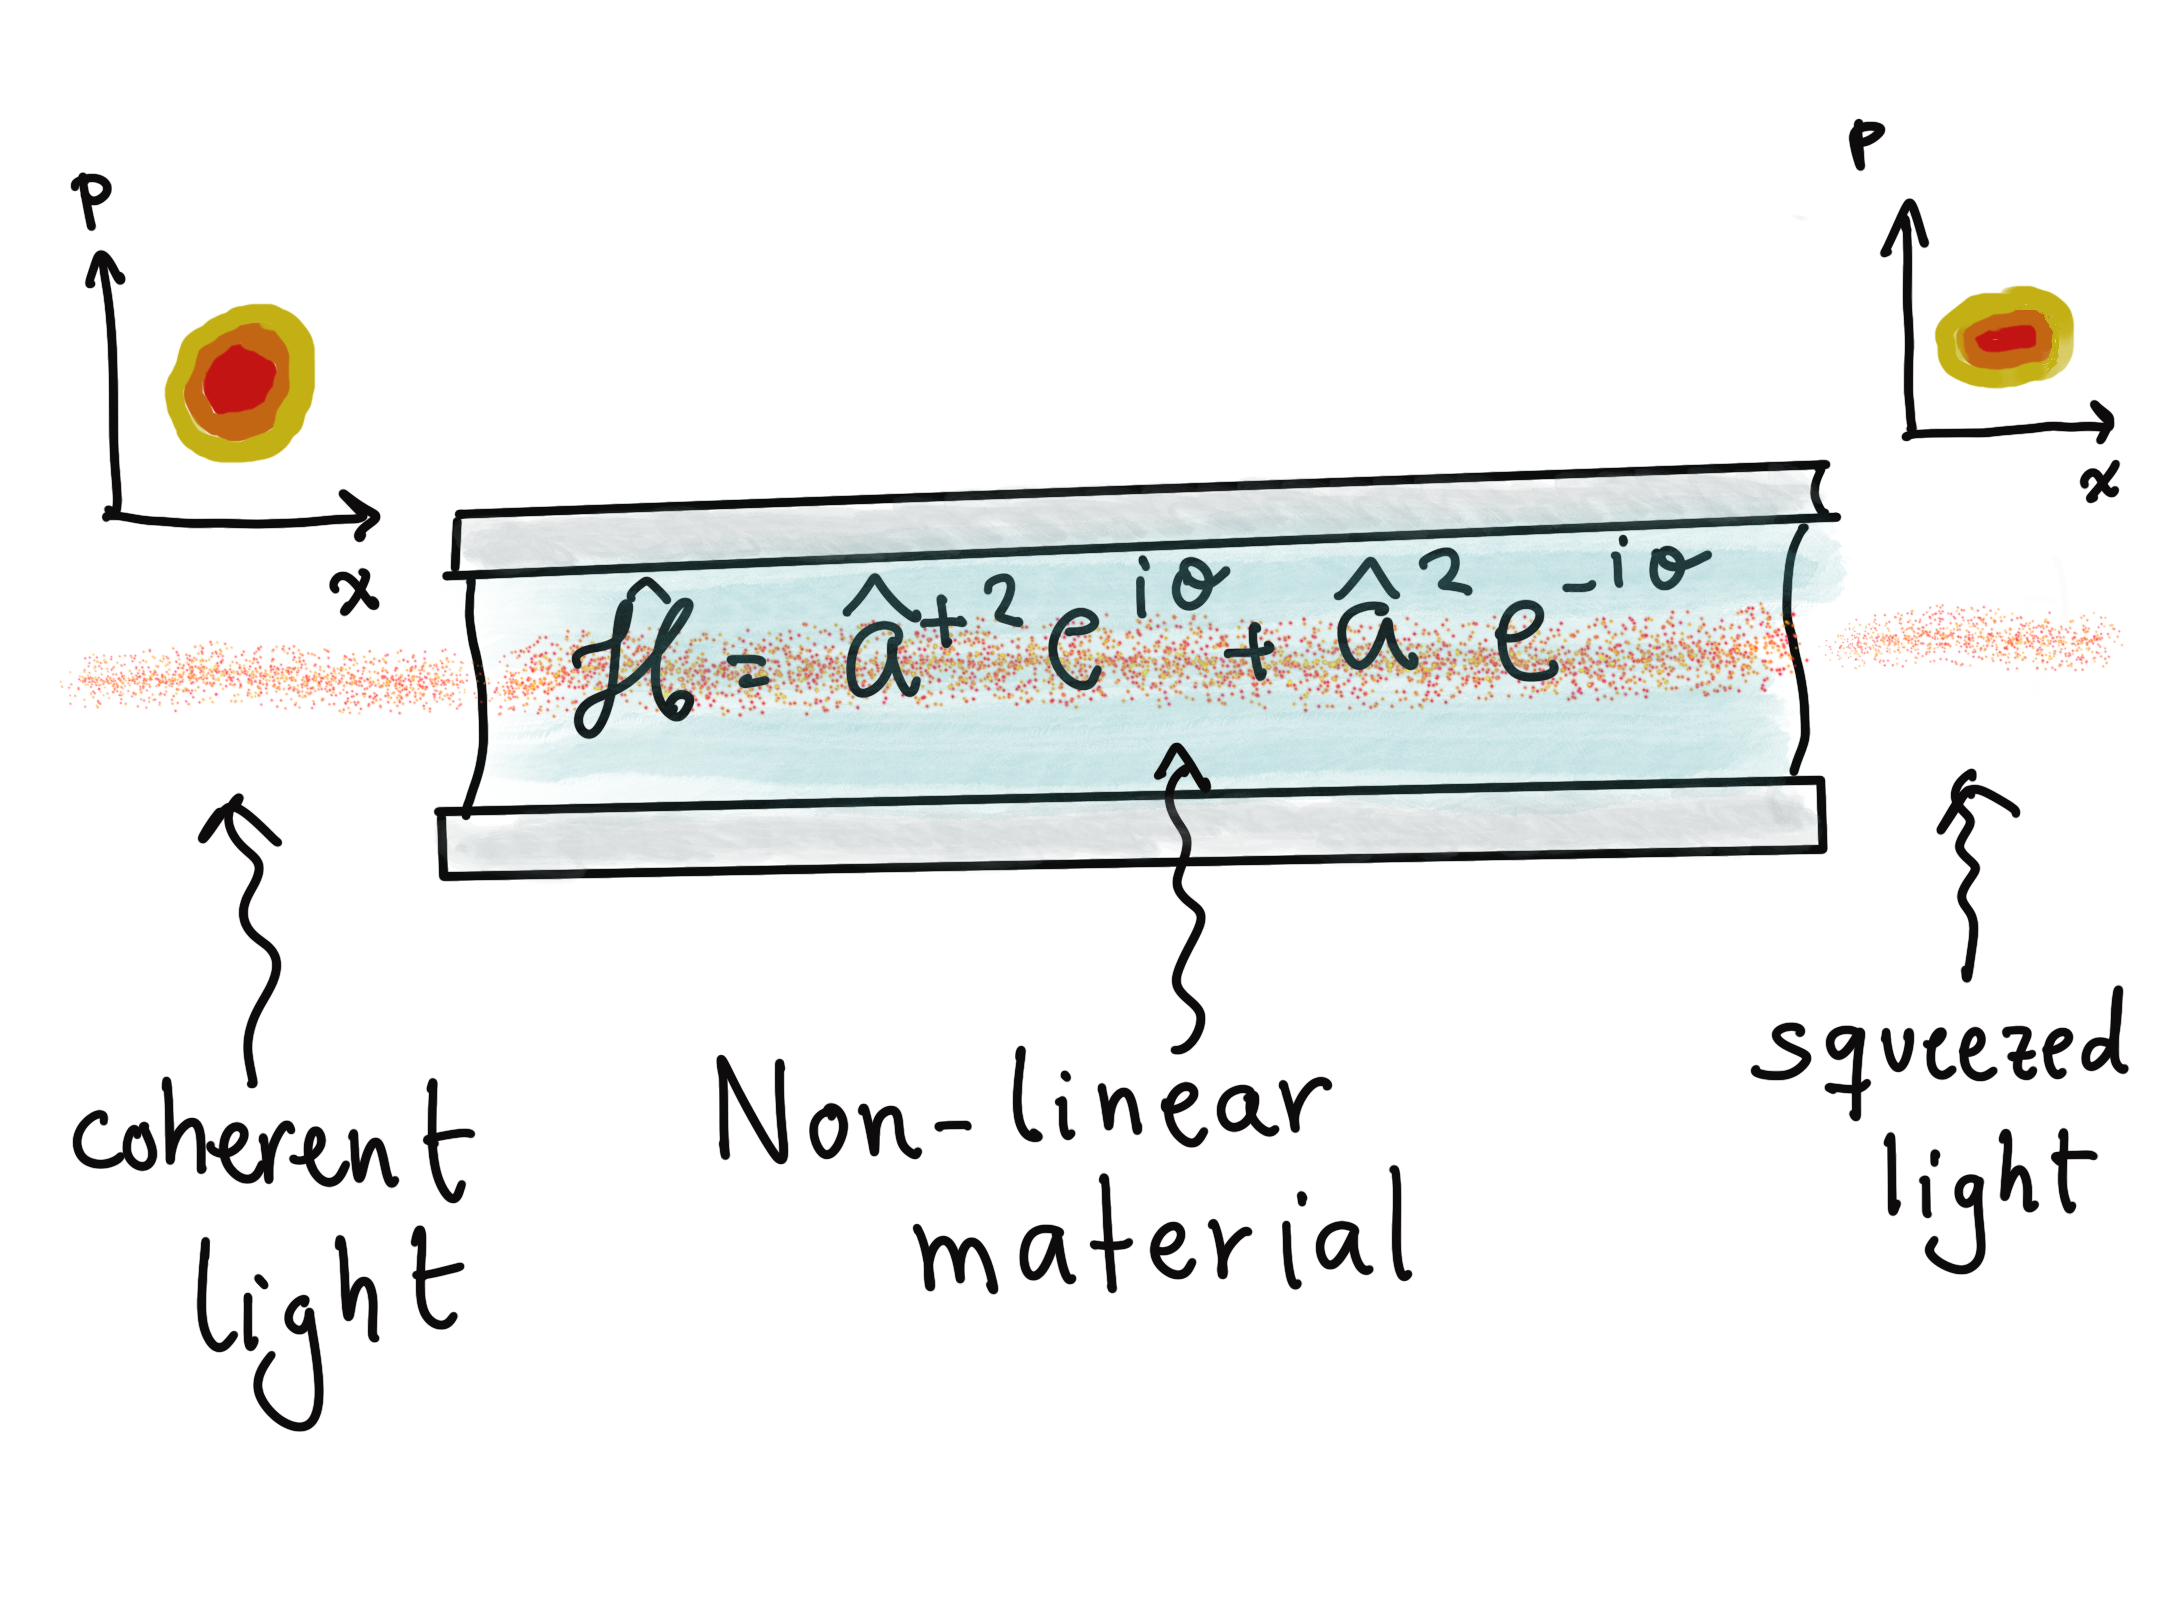 p
x
p
x
Ĥ = â†² e^{iθ} + â² e^{-iθ}
coherent
light
Non-linear
material
squeezed
light